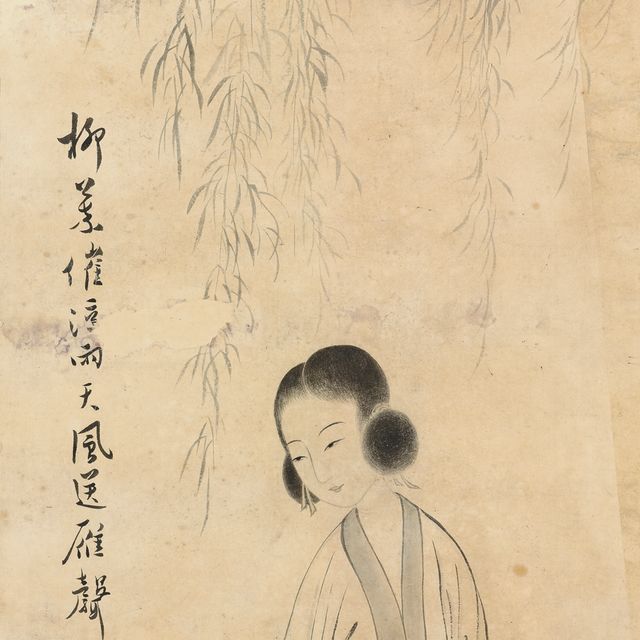 柳葉催雨天風送雁聲